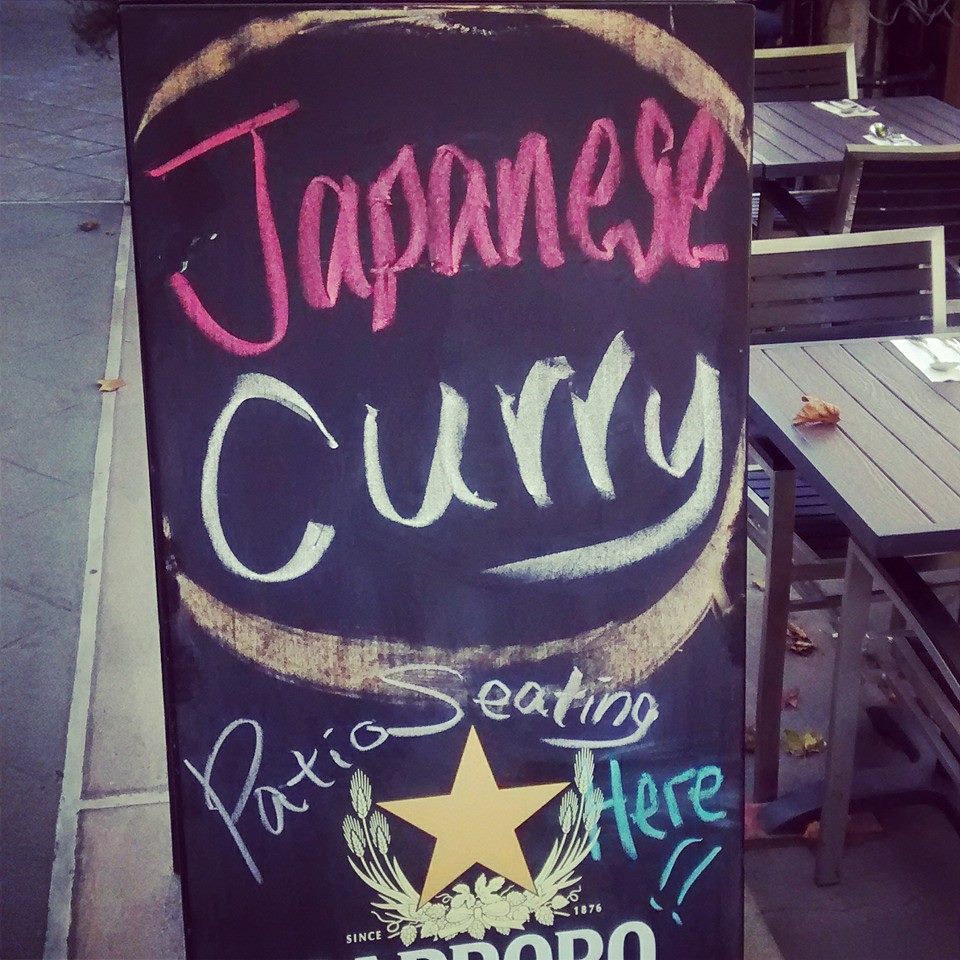 Japanese
Curry
Patio Seating
Here!!
SINCE 1876
SAPPORO